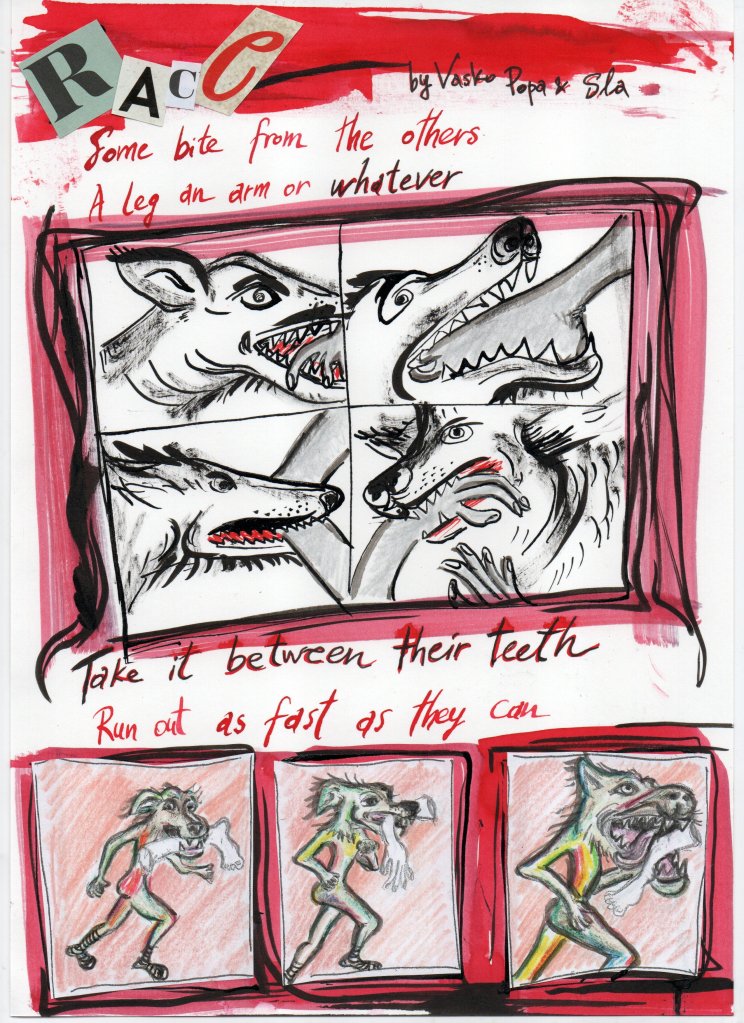 RACE
by Vasko Popa & Sla
Some bite from the others
A leg an arm or whatever
Take it between their teeth
Run out as fast as they can